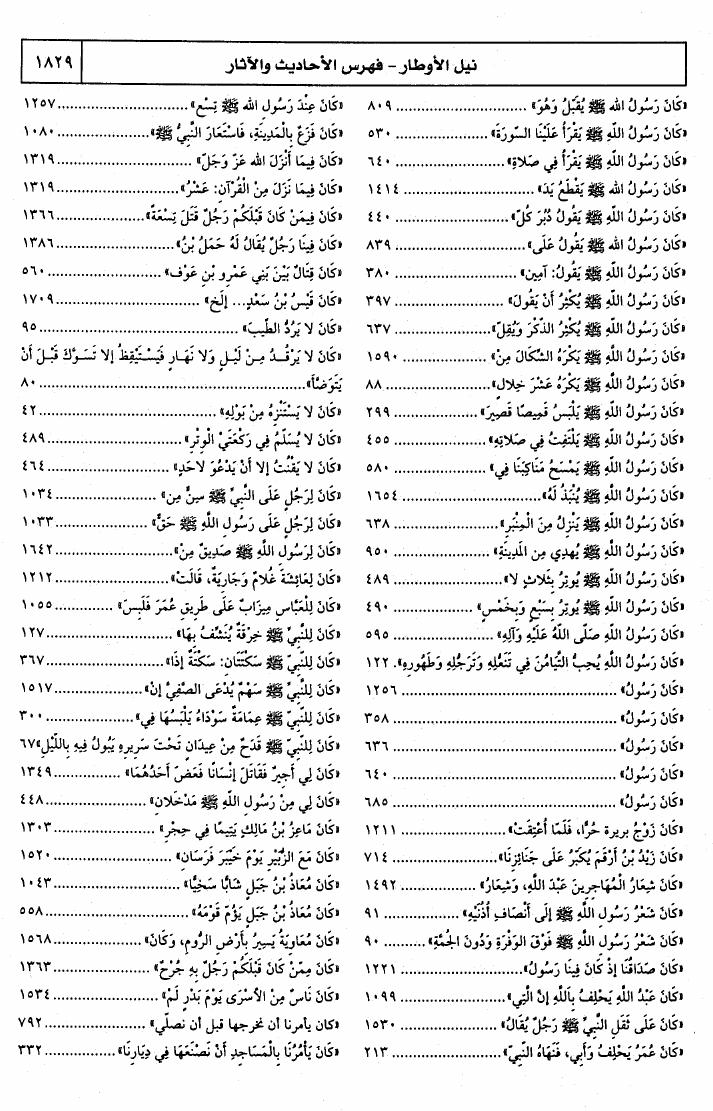 نيل الأوطار - فهرس الأحاديث والآثار
١٨٢٩
«كَانَ رَسُولُ الله ﷺ يُقَبِّلُ وَهُوَ» ٨٠٩
«كَانَ رَسُولُ اللَّهِ ﷺ يَقْرَأُ عَلَيْنَا السُّورَةَ» ٥٣٠
«كَانَ رَسُولُ اللَّهِ ﷺ يَقْرَأُ فِي صَلاةِ» ٦٤٠
«كَانَ رَسُولُ الله ﷺ يَقْطَعُ يَدَ» ١٤١٤
«كَانَ رَسُولُ اللَّهِ ﷺ يَقُولُ دُبُرَ كُلِّ» ٤٤٠
«كَانَ رَسُولُ الله ﷺ يَقُولُ عَلَى» ٨٣٩
«كَانَ رَسُولُ اللَّهِ ﷺ يَقُولُ: آمِين» ٣٨٠
«كَانَ رَسُولُ اللَّهِ ﷺ يُكْثِرُ أَنْ يَقُولَ» ٣٩٧
«كَانَ رَسُولُ اللَّهِ ﷺ يُكْثِرُ الذِّكْرَ وَيُقِلّ» ٦٣٧
«كَانَ رَسُولُ اللَّهِ ﷺ يَكْرَهُ الشِّكَالَ مِنْ» ١٥٩٠
«كَانَ رَسُولُ اللَّهِ ﷺ يَكْرَهُ عَشْرَ خِلالٍ» ٨٨
«كَانَ رَسُولُ اللَّهِ ﷺ يَلْبَسُ قَمِيصًا قَصِيرَ» ٢٩٩
«كَانَ رَسُولُ اللَّهِ ﷺ يَلْتَفِتُ فِي صَلاتِهِ» ٤٥٥
«كَانَ رَسُولُ اللَّهِ ﷺ يَمْسَحُ مَنَاكِبَنَا فِي» ٥٨٠
«كَانَ رَسُولُ اللَّهِ ﷺ يُنْبَذُ لَهُ» ١٦٥٤
«كَانَ رَسُولُ اللَّهِ ﷺ يَنْزِلُ مِنَ الْمِنْبَرِ» ٦٣٨
«كَانَ رَسُولُ اللَّهِ ﷺ يُهدِي مِن المَدِينَةِ» ٩٥٠
«كَانَ رَسُولُ اللَّهِ ﷺ يُوتِرُ بِثَلاثٍ لا» ٤٨٩
«كَانَ رَسُولُ اللَّهِ ﷺ يُوتِرُ بِسَبْعٍ وَبِخَمْسٍ» ٤٩٠
«كَانَ رَسُولُ اللَّهِ صَلَّى اللَّهُ عَلَيْهِ وَآلِهِ» ٥٩٥
«كَانَ رَسُولُ اللَّهِ يُحِبُّ التَّيَامُنَ فِي تَنَعُّلِهِ وَتَرَجُّلِهِ وَطَهُورِهِ». ١٢٢
«كَانَ رَسُولُ» ١٢٥٦
«كَانَ رَسُولُ» ٣٥٨
«كَانَ رَسُولُ» ٦٣٦
«كَانَ رَسُولُ» ٦٤٠
«كَانَ رَسُولُ» ٦٨٥
«كَانَ زَوْجُ بريرة حُرًّا، فَلَمَّا أُعْتِقَتْ» ١٢١١
«كَانَ زَيْدُ بْنُ أَرْقَمَ يُكَبِّرُ عَلَى جَنَائِزِنَا» ٧١٤
«كَانَ شِعَارُ الْمُهَاجِرِينَ عَبْدَ اللَّهِ، وَشِعَارُ» ١٤٩٢
«كَانَ شَعْرُ رَسُولِ اللَّهِ ﷺ إِلَى أَنْصَافِ أُذُنَيْهِ» ٩١
«كَانَ شَعْرُ رَسُولِ اللَّهِ ﷺ فَوْقَ الْوَفْرَةِ وَدُونَ الجُمَّةِ» ٩٠
«كَانَ صَدَاقُنَا إِذْ كَانَ فِينَا رَسُولُ» ١٢٢١
«كَانَ عَبْدُ اللَّهِ يَحْلِفُ بِاللَّهِ إِنَّ الَّتِي» ١٠٩٩
«كَانَ عَلَى ثَقَلِ النَّبِيِّ ﷺ رَجُلٌ يُقَالُ» ١٥٣٠
«كَانَ عُمَرُ يَحْلِفُ وَأَبِي، فَنَهَاهُ النَّبِيّ» ٢١٣
«كَانَ عِنْدَ رَسُولِ الله ﷺ تِسْع» ١٢٥٧
«كَانَ فَزَعٌ بِالْمَدِينَةِ، فَاسْتَعَارَ النَّبِيُّ ﷺ» ١٠٨٠
«كَانَ فِيمَا أَنْزَلَ الله عَزّ وَجَلّ» ١٣١٩
«كَانَ فِيمَا نَزَلَ مِنْ الْقُرْآنِ: عَشْرُ» ١٣١٩
«كَانَ فِيمَنْ كَانَ قَبْلَكُمْ رَجُلٌ قَتَلَ تِسْعَةً» ١٣٦٦
«كَانَ فِينَا رَجُلٌ يُقَالُ لَهُ حَمَلُ بْنُ» ١٣٨٦
«كَانَ قِتَالٌ بَيْنَ بَنِي عَمْرِو بْنِ عَوْف» ٥٦٠
«كَانَ قَيْسُ بْنُ سَعْدٍ... إلَخ» ١٧٠٩
«كَانَ لا يَرُدُّ الطِّيبَ» ٩٥
«كَانَ لا يَرْقُدُ مِنْ لَيْلٍ وَلا نَهَارٍ فَيَسْتَيْقِظُ إلا تَسَوَّكَ قَبْلَ أَنْ
يَتَوَضَّأَ» ٨٠
«كَانَ لا يَسْتَنْزِهُ مِنْ بَوْلِهِ» ٤٢
«كَانَ لا يُسَلِّمُ فِي رَكْعَتَيْ الْوِتْرِ» ٤٨٩
«كَانَ لا يَقْنُتُ إلا أَنْ يَدْعُوَ لاحَدٍ» ٤٦٤
«كَانَ لِرَجُلٍ عَلَى النَّبِيِّ ﷺ سِنٌّ مِن» ١٠٣٤
«كَانَ لِرَجُلٍ عَلَى رَسُولِ اللَّهِ ﷺ حَقٌّ» ١٠٣٣
«كَانَ لِرَسُولِ اللَّهِ ﷺ صَدِيقٌ مِنْ» ١٦٤٢
«كَانَ لِعَائِشَةَ غُلامٌ وَجَارِيَةٌ، قَالَتْ» ١٢١٢
«كَانَ لِلْعَبَّاسِ مِيزَابٌ عَلَى طَرِيقِ عُمَرَ فَلَبِسَ» ١٠٥٥
«كَانَ لِلنَّبِيِّ ﷺ خِرْقَةٌ يُنَشِّفُ بهَا» ١٢٧
«كَانَ لِلنَّبِيِّ ﷺ سَكْتَتَانِ: سَكْتَةٌ إذَا» ٣٦٧
«كَانَ لِلنَّبِيِّ ﷺ سَهْمٌ يُدْعَى الصَّفِيُّ إنْ» ١٥١٧
«كَانَ لِلنَّبِيِّ ﷺ عِمَامَةٌ سَوْدَاءُ يَلْبَسُهَا فِي» ٣٠٠
«كَانَ لِلنَّبِيِّ ﷺ قَدَحٌ مِنْ عِيدَانٍ تَحْتَ سَرِيرِهِ يَبُولُ فِيهِ بِاللَّيْلِ» ٦٧
«كَانَ لِي أَجِيرٌ فَقَاتَلَ إنْسَانًا فَعَضَّ أَحَدُهُمَا» ١٣٤٩
«كَانَ لِي مِنْ رَسُولِ اللَّهِ ﷺ مَدْخَلانِ» ٤٤٨
«كَانَ مَاعِزُ بْنُ مَالِكٍ يَتِيمًا فِي حِجْرِ» ١٣٠٣
«كَانَ مَعَ الزُّبَيْرِ يَوْمَ خَيْبَرَ فَرَسَانِ» ١٥٢٠
«كَانَ مُعَاذُ بْنُ جَبَلٍ شَابًّا سَخِيًّا» ١٠٤٣
«كَانَ مُعَاذُ بْنُ جَبَلٍ يَؤُمّ قَوْمَهُ» ٥٥٨
«كَانَ مُعَاوِيَةُ يَسِيرُ بِأَرْضِ الرُّومِ، وَكَانَ» ١٥٦٨
«كَانَ مِمّنْ كَانَ قَبْلَكُمْ رَجُلٌ بِهِ جُرْحٌ» ١٣٦٣
«كَانَ نَاسٌ مِنْ الأَسْرَى يَوْمَ بَدْرٍ لَمْ» ١٥٣٤
«كان يأمرنا أن نخرجها قبل أن نصلّي» ٧٩٢
«كَانَ يَأْمُرُنَا بِالْمَسَاجِدِ أَنْ نَصْنَعَهَا فِي دِيَارِنَا» ٣٣٢